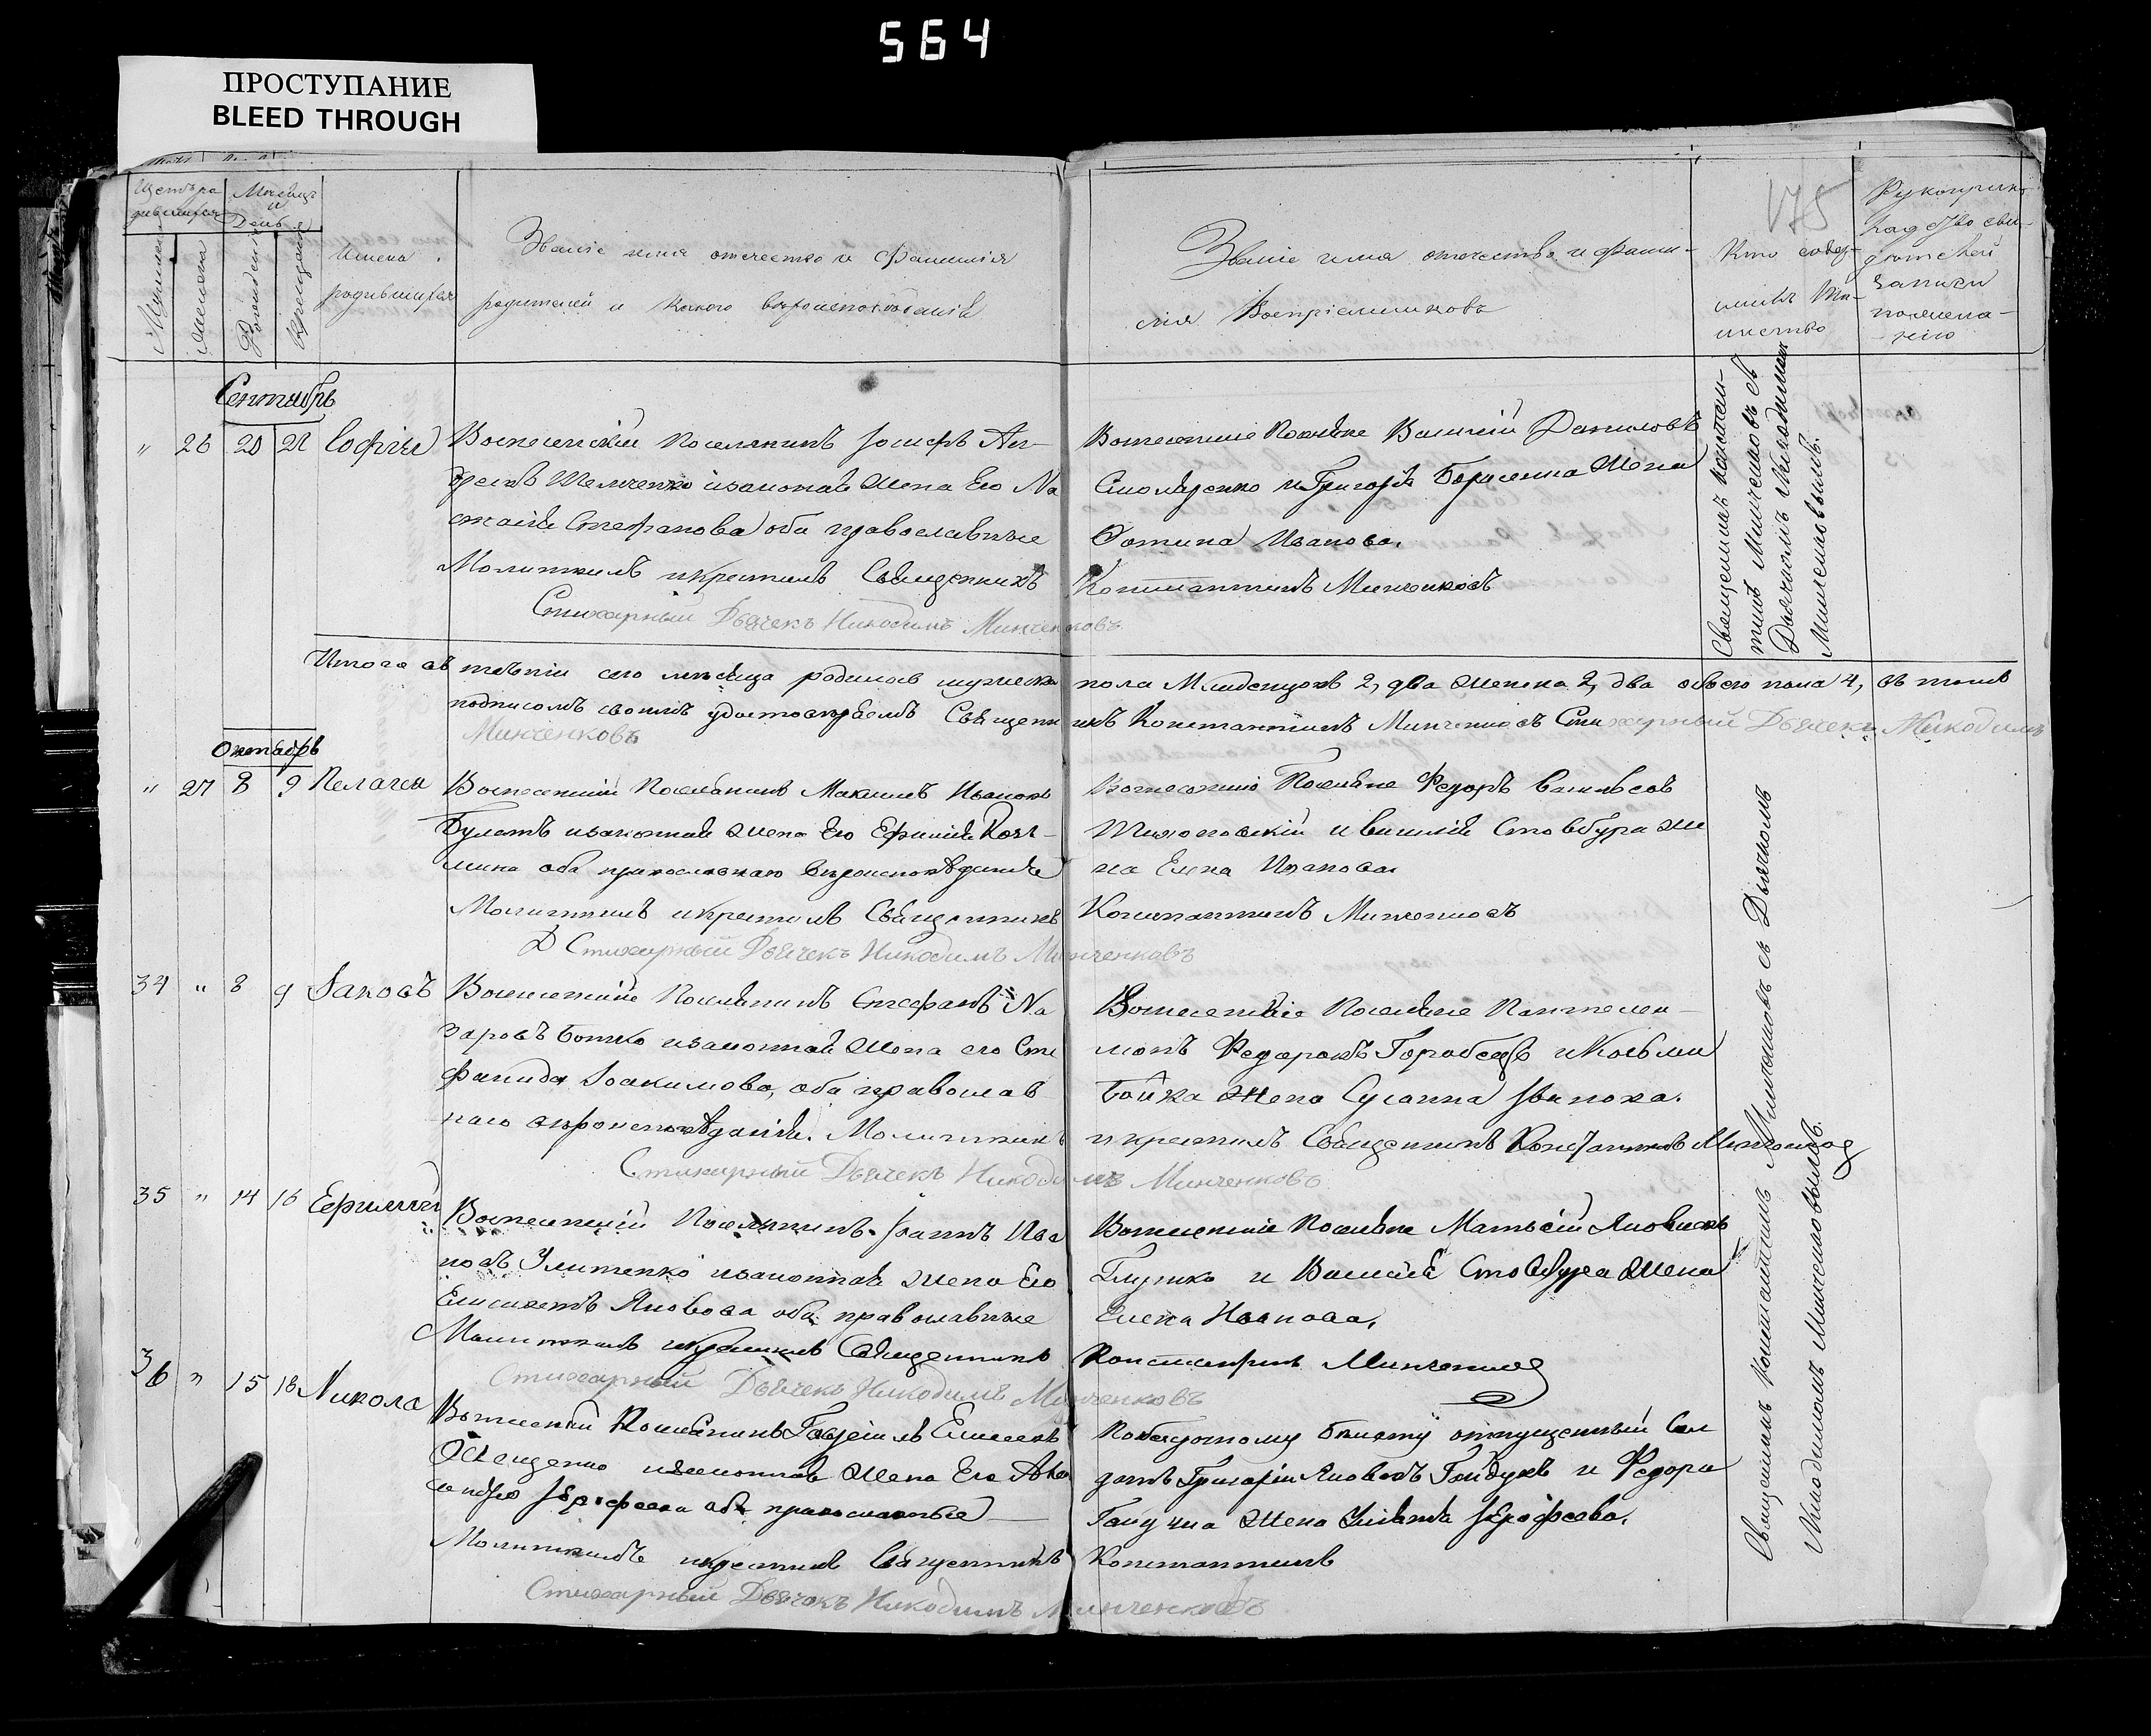 564
ПРОСТУПАНИЕ
BLEED THROUGH
175
Счетъ родившихся
Мѣсяцъ и День
Мужеска
Женска
Рожденія
Крещенія
Имена
родившихся
Званіе имя отечество и фамилія
родителей и какого вѣроисповѣданія
Званіе имя отечество и фами-
лія Воспріемниковъ
Кто совер-
шилъ Та-
инство
Рукоприкла
дство сви-
дѣтелей
записи
по желa-
нію
Сентябрь
" 26 20 21 Софія
Вознесенскій Поселянинъ Іосифъ Ан-
изаконная жена Его На
Стефанова оба православные
Молитвилъ и крестилъ Священникъ
Стихарный Дьячекъ Никодимъ Минченковъ
Вознесенскіе Поселяне Василій Даниловъ
и Григорія Борисенка Жена
Фотина Иванова.
Константинъ Минченковъ
Священникъ Констан-
тинъ Минченковъ съ
Дьячкомъ Никодимомъ
Минченковымъ.
Итого въ теченіи сего мѣсяца родилось мужеска пола Младенцовъ 2, два женска 2, два обоего пола 4, въ томъ
подписомъ своимъ удостовѣряемъ Священникъ Константинъ Минченковъ Стихарный Дьячекъ Никодимъ
Минченковъ
Октябрь
" 27 8 9 Пелагея
Вознесенскій Поселянинъ Максимъ Ивановъ
Булатъ изаконная жена Его Ефимія Козь-
мина оба православнаго вѣроисповѣданія
Молитвилъ и крестилъ Священникъ
Стихарный Дьячекъ Никодимъ Минченковъ
Вознесенскіе Поселяне Федоръ Васильевъ
и Василія Стовбура же
на Елена Иванова
Константинъ Минченковъ
34 " 8 9 Іаковъ
Вознесенскій Поселянинъ Стефанъ На
заровъ Бойко изаконная жена его Сте
фанида Іоакимова, оба православ
наго вѣроисповѣданія. Молитвилъ
Стихарный Дьячекъ Никодимъ Минченковъ
Вознесенскіе Поселяне Пантелеи-
монъ Федоровъ Горобецъ и Козьмы
Бойка жена Сусанна Іванова.
и крестилъ Священникъ Константинъ Минченковъ
35 " 14 16 Ефимій
Вознесенскій Поселянинъ Іоаннъ Ива
новъ изаконная жена Его
Елисаветъ Яковова оба православные
Молитвилъ и крестилъ Священникъ
Стихарный Дьячекъ Никодимъ Минченковъ
Вознесенскіе Поселяне Матвѣй Яковлевъ
Глушко и Василія Стовбура жена
Елена Иванова.
Константинъ Минченковъ
36 " 15 18 Никола
Вознесенскій Поселянинъ Гавріилъ Елисеевъ
изаконная жена Его Алек
сандра Іерофеева оба православные
Молитвилъ и крестилъ Священникъ
Стихарный Дьячокъ Никодимъ Минченковъ
По безсрочному билету отпущенный Сол
датъ Григорій Яковлевъ Гайдукъ и Федора
жена Іерофеева.
Константинъ
Священникъ Константинъ Минченковъ съ Дьячкомъ
Никодимомъ Минченковымъ.